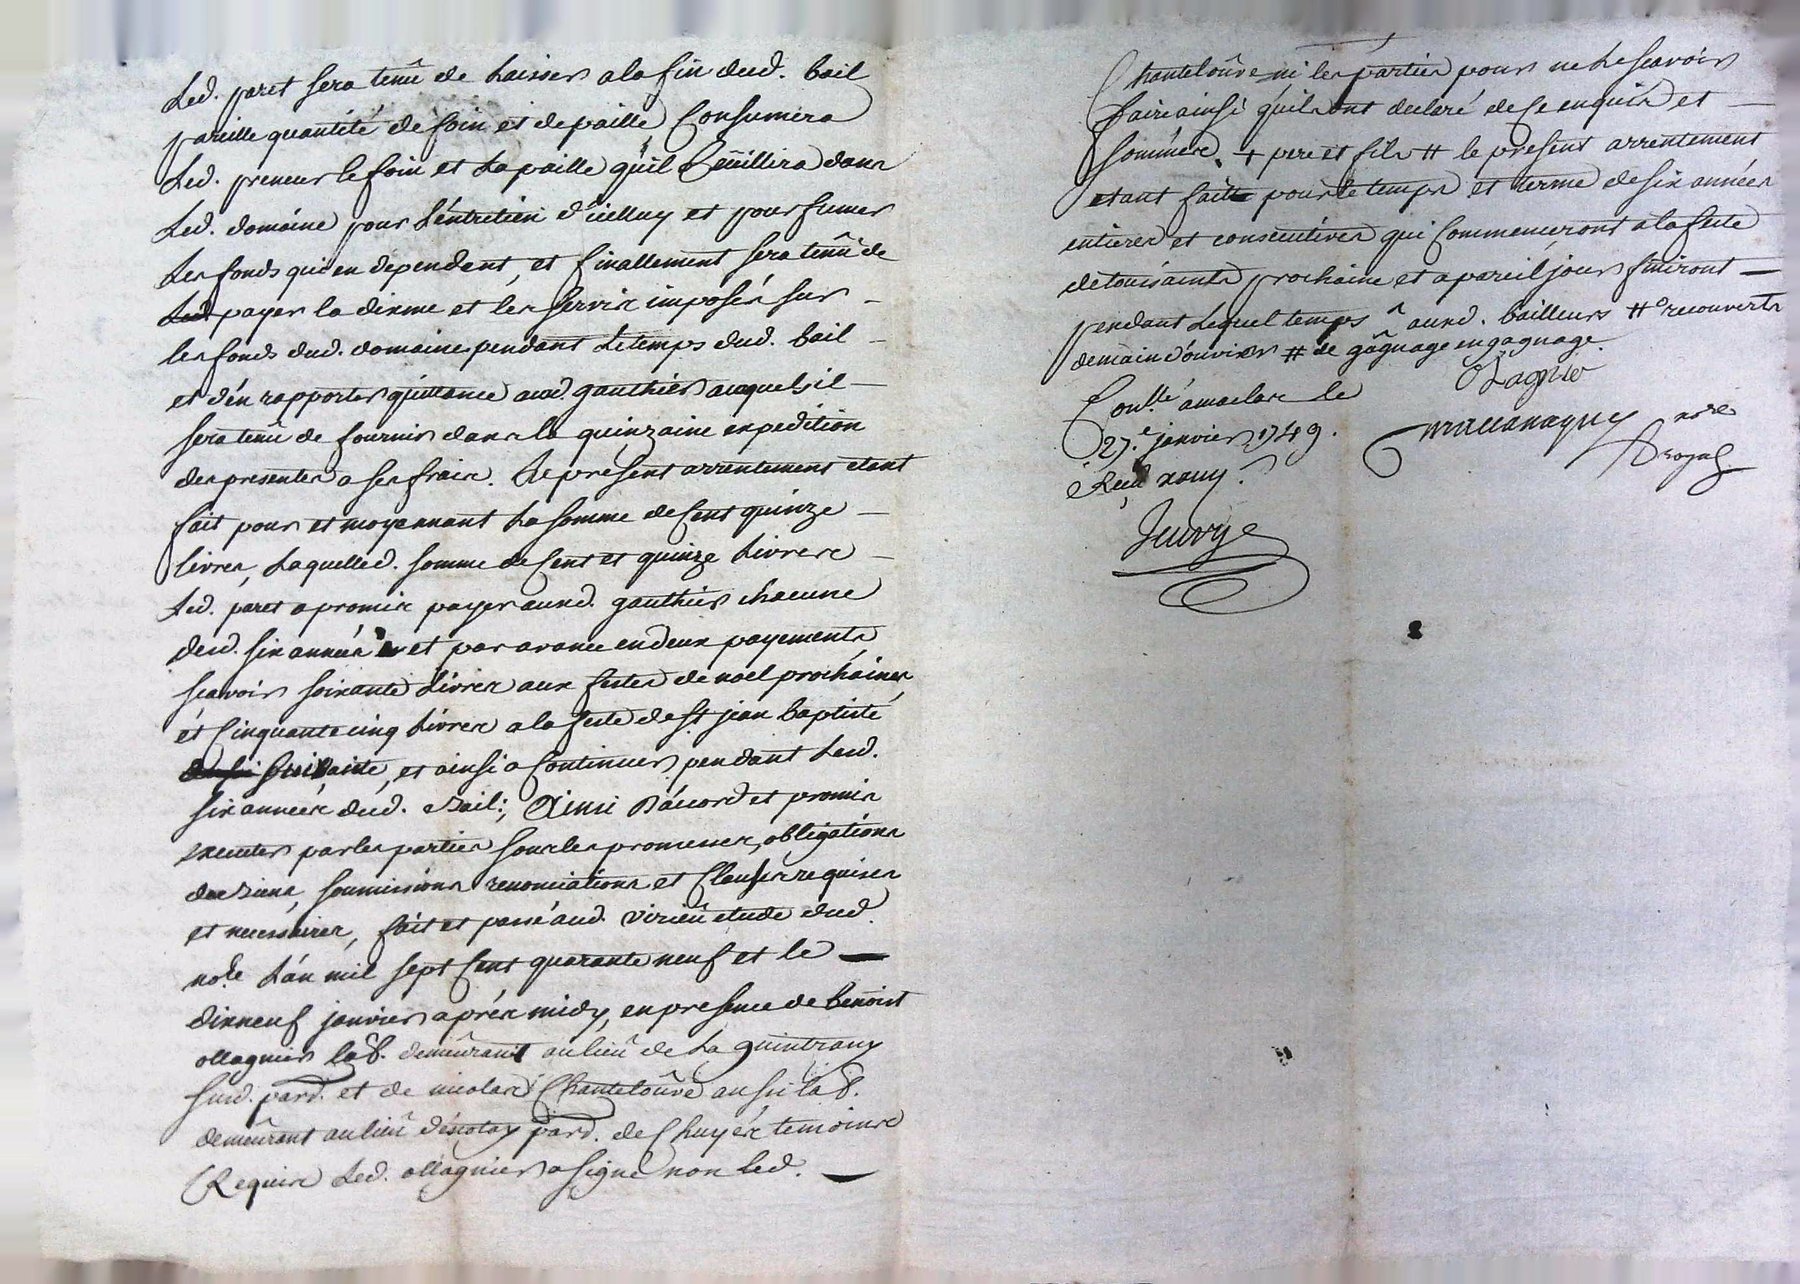 Led. paret sera tenû de Laisser a la fin dud. bail
pareille quantité de foin et de paille, Consumera
Led. preneur le foin et La paille qu'il Ceüillira dans
Led. domaine pour L'éntretien d'icelluy et pour fumer
Les fonds qui en dépendent, et finallement sera tenû de
payer la dixme et les servis imposés sur
les fonds dud. domaine pendant Le temps dud. bail
et d'én rapporter quittance aud gauthier auquel il
sera tenû de fournir dans la quinzaine expedition
des presentes a ses frais. Le présent arrentement etant
fait pour et moyennant La somme de Cent quinze
livres, Laquelle d. somme de Cent et quinze Livres
Led. paret a promis payer aud. gauthier chacune
desd. six années et par avance en deux payements
scavoir soixante Livres aux festes de noel prochaines
et Cinquante cinq Livres a la feste de st jean baptiste
suivante, et ainsi a Continuer pendant Lesd.
six années dud. Bail; Ainsi D'áccord et promis
executer par les parties sous les promesses, obligations
de Biens, soumissions renonciations et Clauses requises
et necessaires, fait et passé aud. virieû etude dud.
nore. L'án mil sept Cent quarante neuf et le
dixneuf janvier aprés midy, en presence de benoist
ollagnier lab. demeûrant au lieû de La guintrany
susd. parr. et de nicolas Chanteloûve aussi lab.
demeûrant au lieû d'éscotay parr. de Chuyér temoins
Requis Led. ollagnier a signé non led.
Chanteloûve ni les parties pour ne Le scavoir
faire ainsi qu'ils ont declaré de ce enquis et
sommés. + pere et fils # le present arrentement
etant fait pour le temps et terme de six années
entieres et consecutives qui Commenceront a la feste
de toussaints prochaine et a pareil jour finiront
pendant Lequel temps aud. bailleur # recouverts
de main d'ouvrier # de gâgnage en gagnage.
Conllé a maclas le
27.e janvier 1749.
Recu
nore
Royal